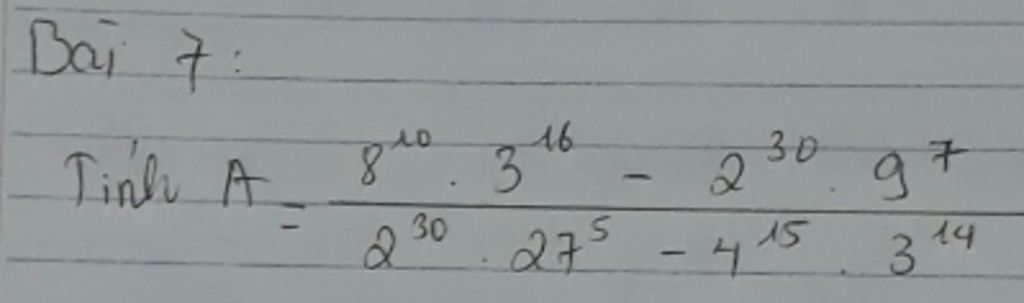 Bài 7:
Tính A = \frac{8^{10} . 3^{16} - 2^{30} . 9^{7}}{2^{30} . 27^{5} - 4^{15} . 3^{14}}